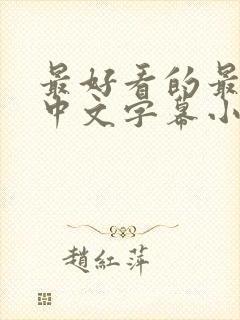 最好看的最
中文字幕小
趙紅萍